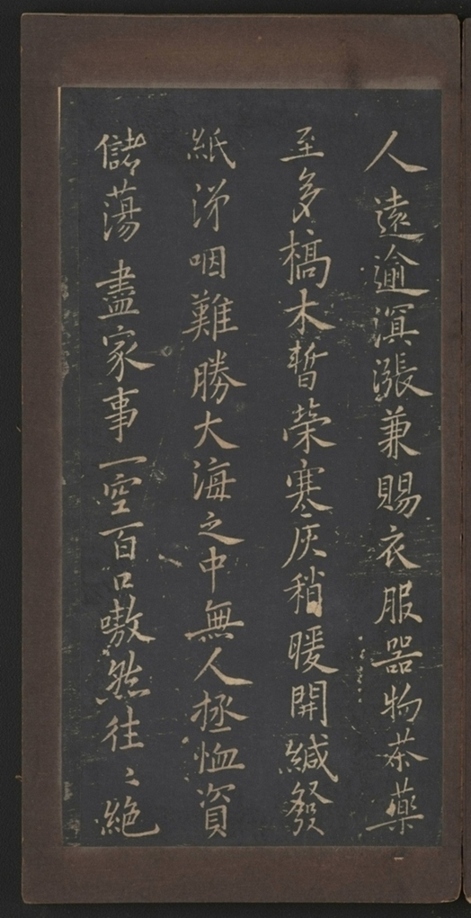 人遠逾溟漲兼賜衣服器物茶藥
至多槁木暫榮寒灰稍暖開緘發
紙涕咽難勝大海之中無人拯恤資
儲蕩盡家事一空百口嗷然往〻絶